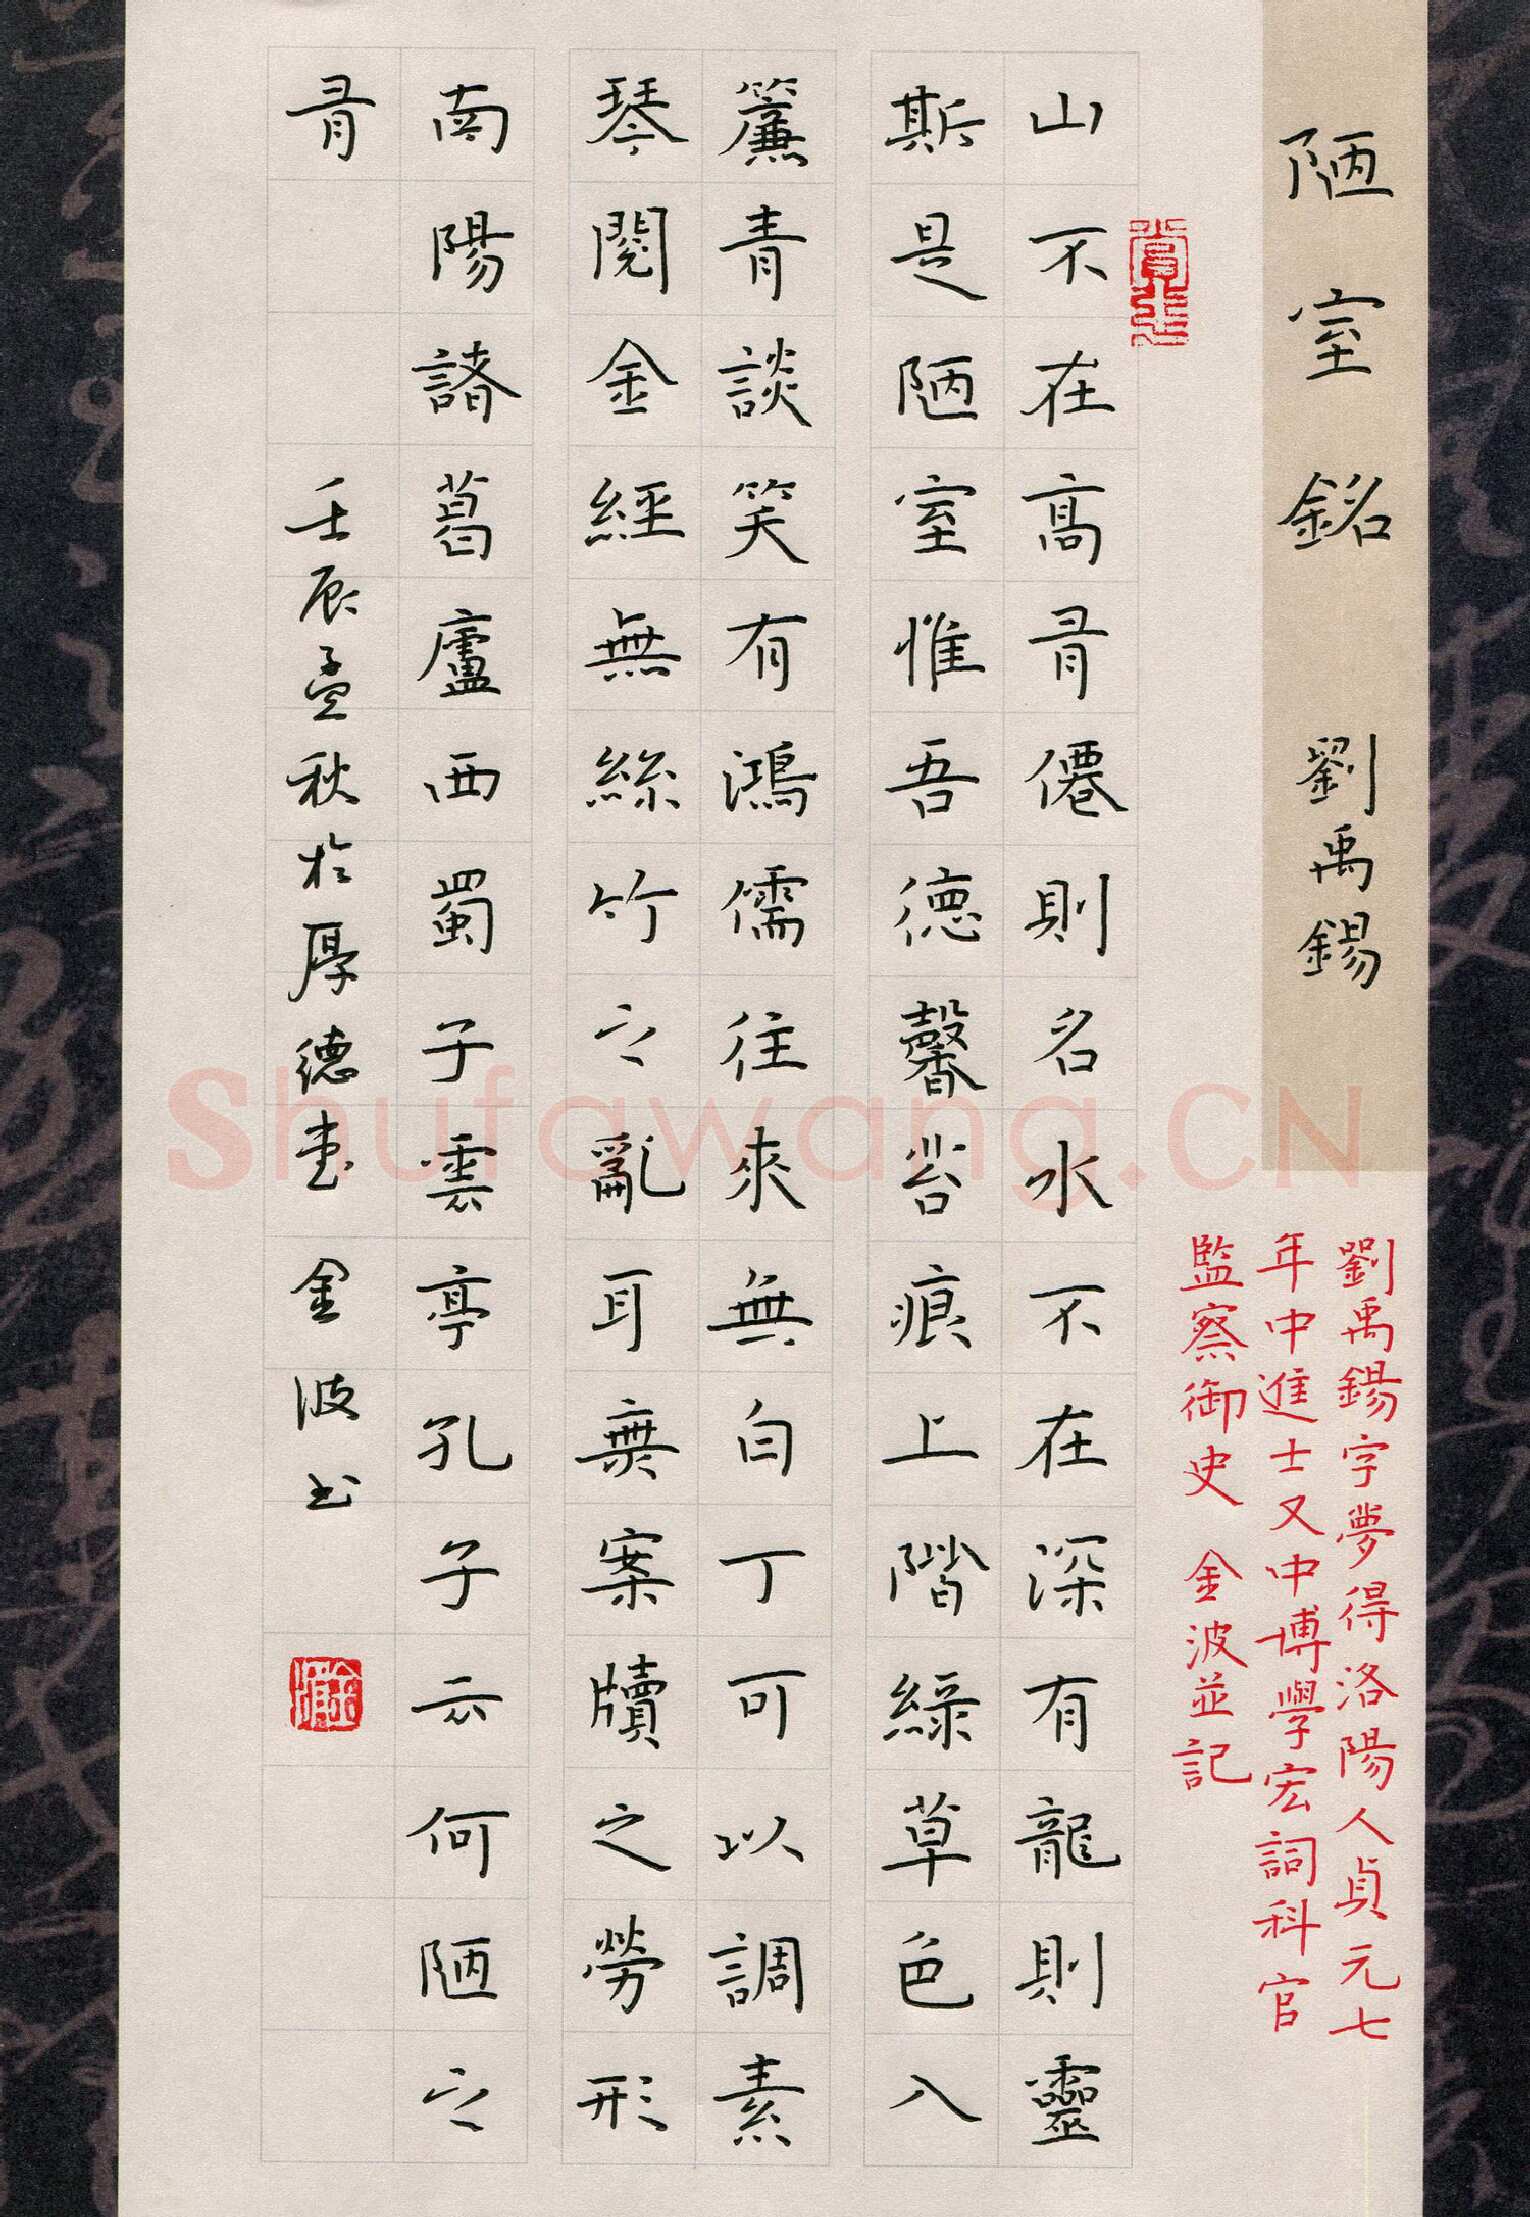 陋室銘 劉禹錫
劉禹錫字夢得洛陽人貞元七
年中進士又中博學宏詞科官
監察御史 金波並記
山不在高有僊則名水不在深有龍則靈
斯是陋室惟吾德馨苔痕上階綠草色入
簾青談笑有鴻儒往來無白丁可以調素
琴閱金經無絲竹之亂耳無案牘之勞形
南陽諸葛廬西蜀子雲亭孔子云何陋之
有
壬辰孟秋於厚德堂 金波書
Shufawang.CN